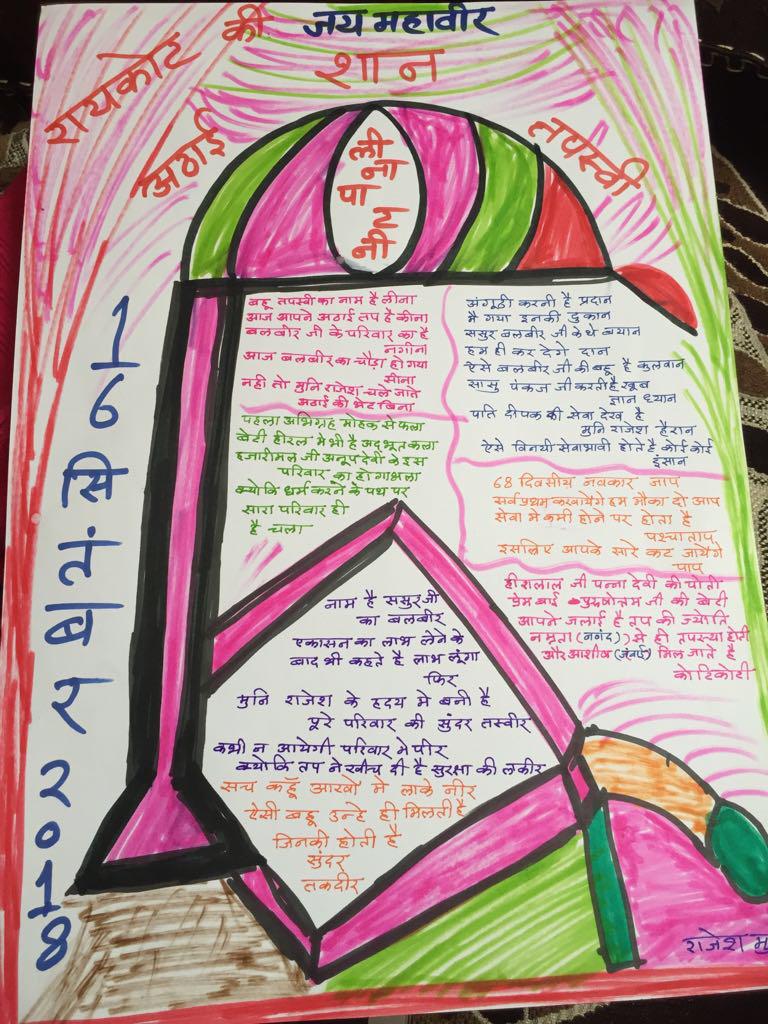 जय महावीर
रायकोट की शान
अठाई तपस्वी
लीना
पाटनी
16 सितंबर 2018
बहू तपस्वी का नाम है लीना
आज आपने अठाई तप है कीना
बलबीर जी के परिवार का है
नगीना
आज बलबीर का चौड़ा हो गया
सीना
नही तो मुनि राजेश चले जाते
अठाई की भेंट बिना
पहला अभिग्रह मोहक से फला
बेटी हीरल मे भी है अदभूत कला
हजारीमल जी अनूपदेवी के इस
परिवार का हो गा भला
क्योकि धर्म करने के पथ पर
सारा परिवार ही
है चला
अंगूठी करनी है प्रदान
मै गया इनकी दुकान
ससुर बलबीर जी के थे बयान
हम ही कर देगे दान
ऐसे बलबीर जी की बहू है कुलवान
सासु पंकज जी करती है खूब
ज्ञान ध्यान
पति दीपक की सेवा देख है
मुनि राजेश हैरान
ऐसे विनयी सेवाभावी होते है कोई कोई
इंसान
68 दिवसीय नवकार जाप
सर्वप्रथम करवायेंगे हम मौका दो आप
सेवा मे कमी होने पर होता है
पश्चाताप
इसलिए आपके सारे कट जायेंगे
पाप
हीरालाल जी पन्ना देवी की पोती
प्रेम बाई पुरुषोत्तम जी की बेटी
आपने जलाई है तप की ज्योति
नम्रता (ननंद) से हो तपस्या होती
और आशीव (जंवाई) मिल जाते है
को टिकोटी
नाम है ससुर जी
का बलबीर
एकासन का लाभ लेने के
बाद भी कहते है लाभ लूंगा
फिर
मुनि राजेश के हृदय मे बनी है
पूरे परिवार की सुंदर तस्वीर
कभी न आयेगी परिवार मे पीर
क्योकि तप ने खीच दी है सुरक्षा की लकीर
सच कहूँ आखों मे लाके नीर
ऐसी बहू उन्हे ही मिलती है
जिनकी होती है
सुंदर
तकदीर
राजेश मु